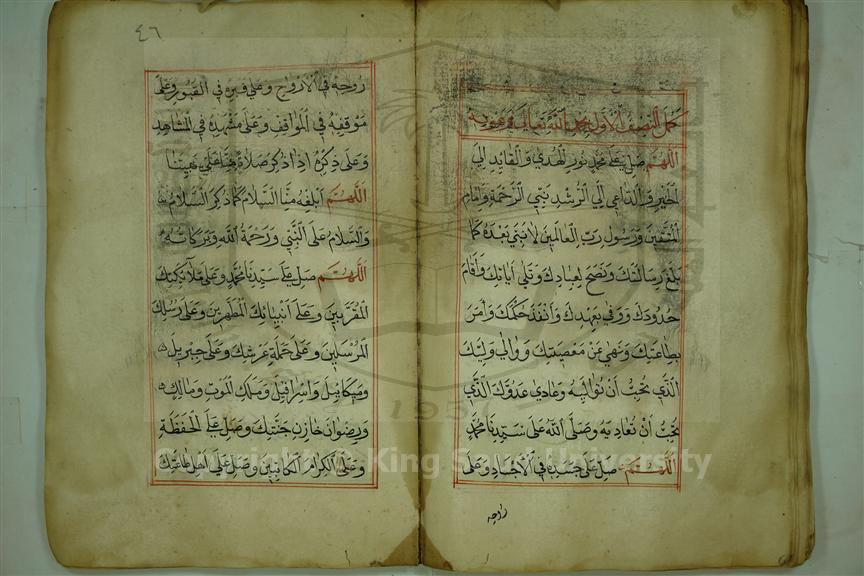 كمل النصف الاول بحمد الله تعالى وقوته
اللهم صل على محمد نور الهدى والقايد الى
الخير والداعي الى الرشد نبي الرحمة وامام
المتقين ورسول رب العالمين لا نبي بعده كما
بلغ رسالتك ونصح لعبادك وتلى اياتك واقام
حدودك ووفى بعهدك وانفذ حكمك وامر
بطاعتك ونهى عن معصيتك ووالى وليك
الذي تحب ان تواليه وعادى عدوك الذي
تحب ان تعاديه وصلى الله على سيدنا محمد
اللهم صل على جسده في الاجساد وعلى
٤٦
روحه في الارواح وعلى قبره في القبور وعلى
موقفه في المواقف وعلى مشهده في المشاهد
وعلى ذكره اذا ذكر صلاة منا على نبينا
اللهم ابلغه منا السلام كما ذكر السلام
والسلام على النبي ورحمة الله وبركاته
اللهم صل على سيدنا محمد وعلى ملائكتك
المقربين وعلى انبيائك المطهرين وعلى رسلك
المرسلين وعلى حملة عرشك وعلى جبريل
وميكائيل واسرافيل وملك الموت ومالك
ورضوان خازن جنتك وصل على الحفظة
وعلى الكرام الكاتبين وصل على اهل طاعتك
King University
195